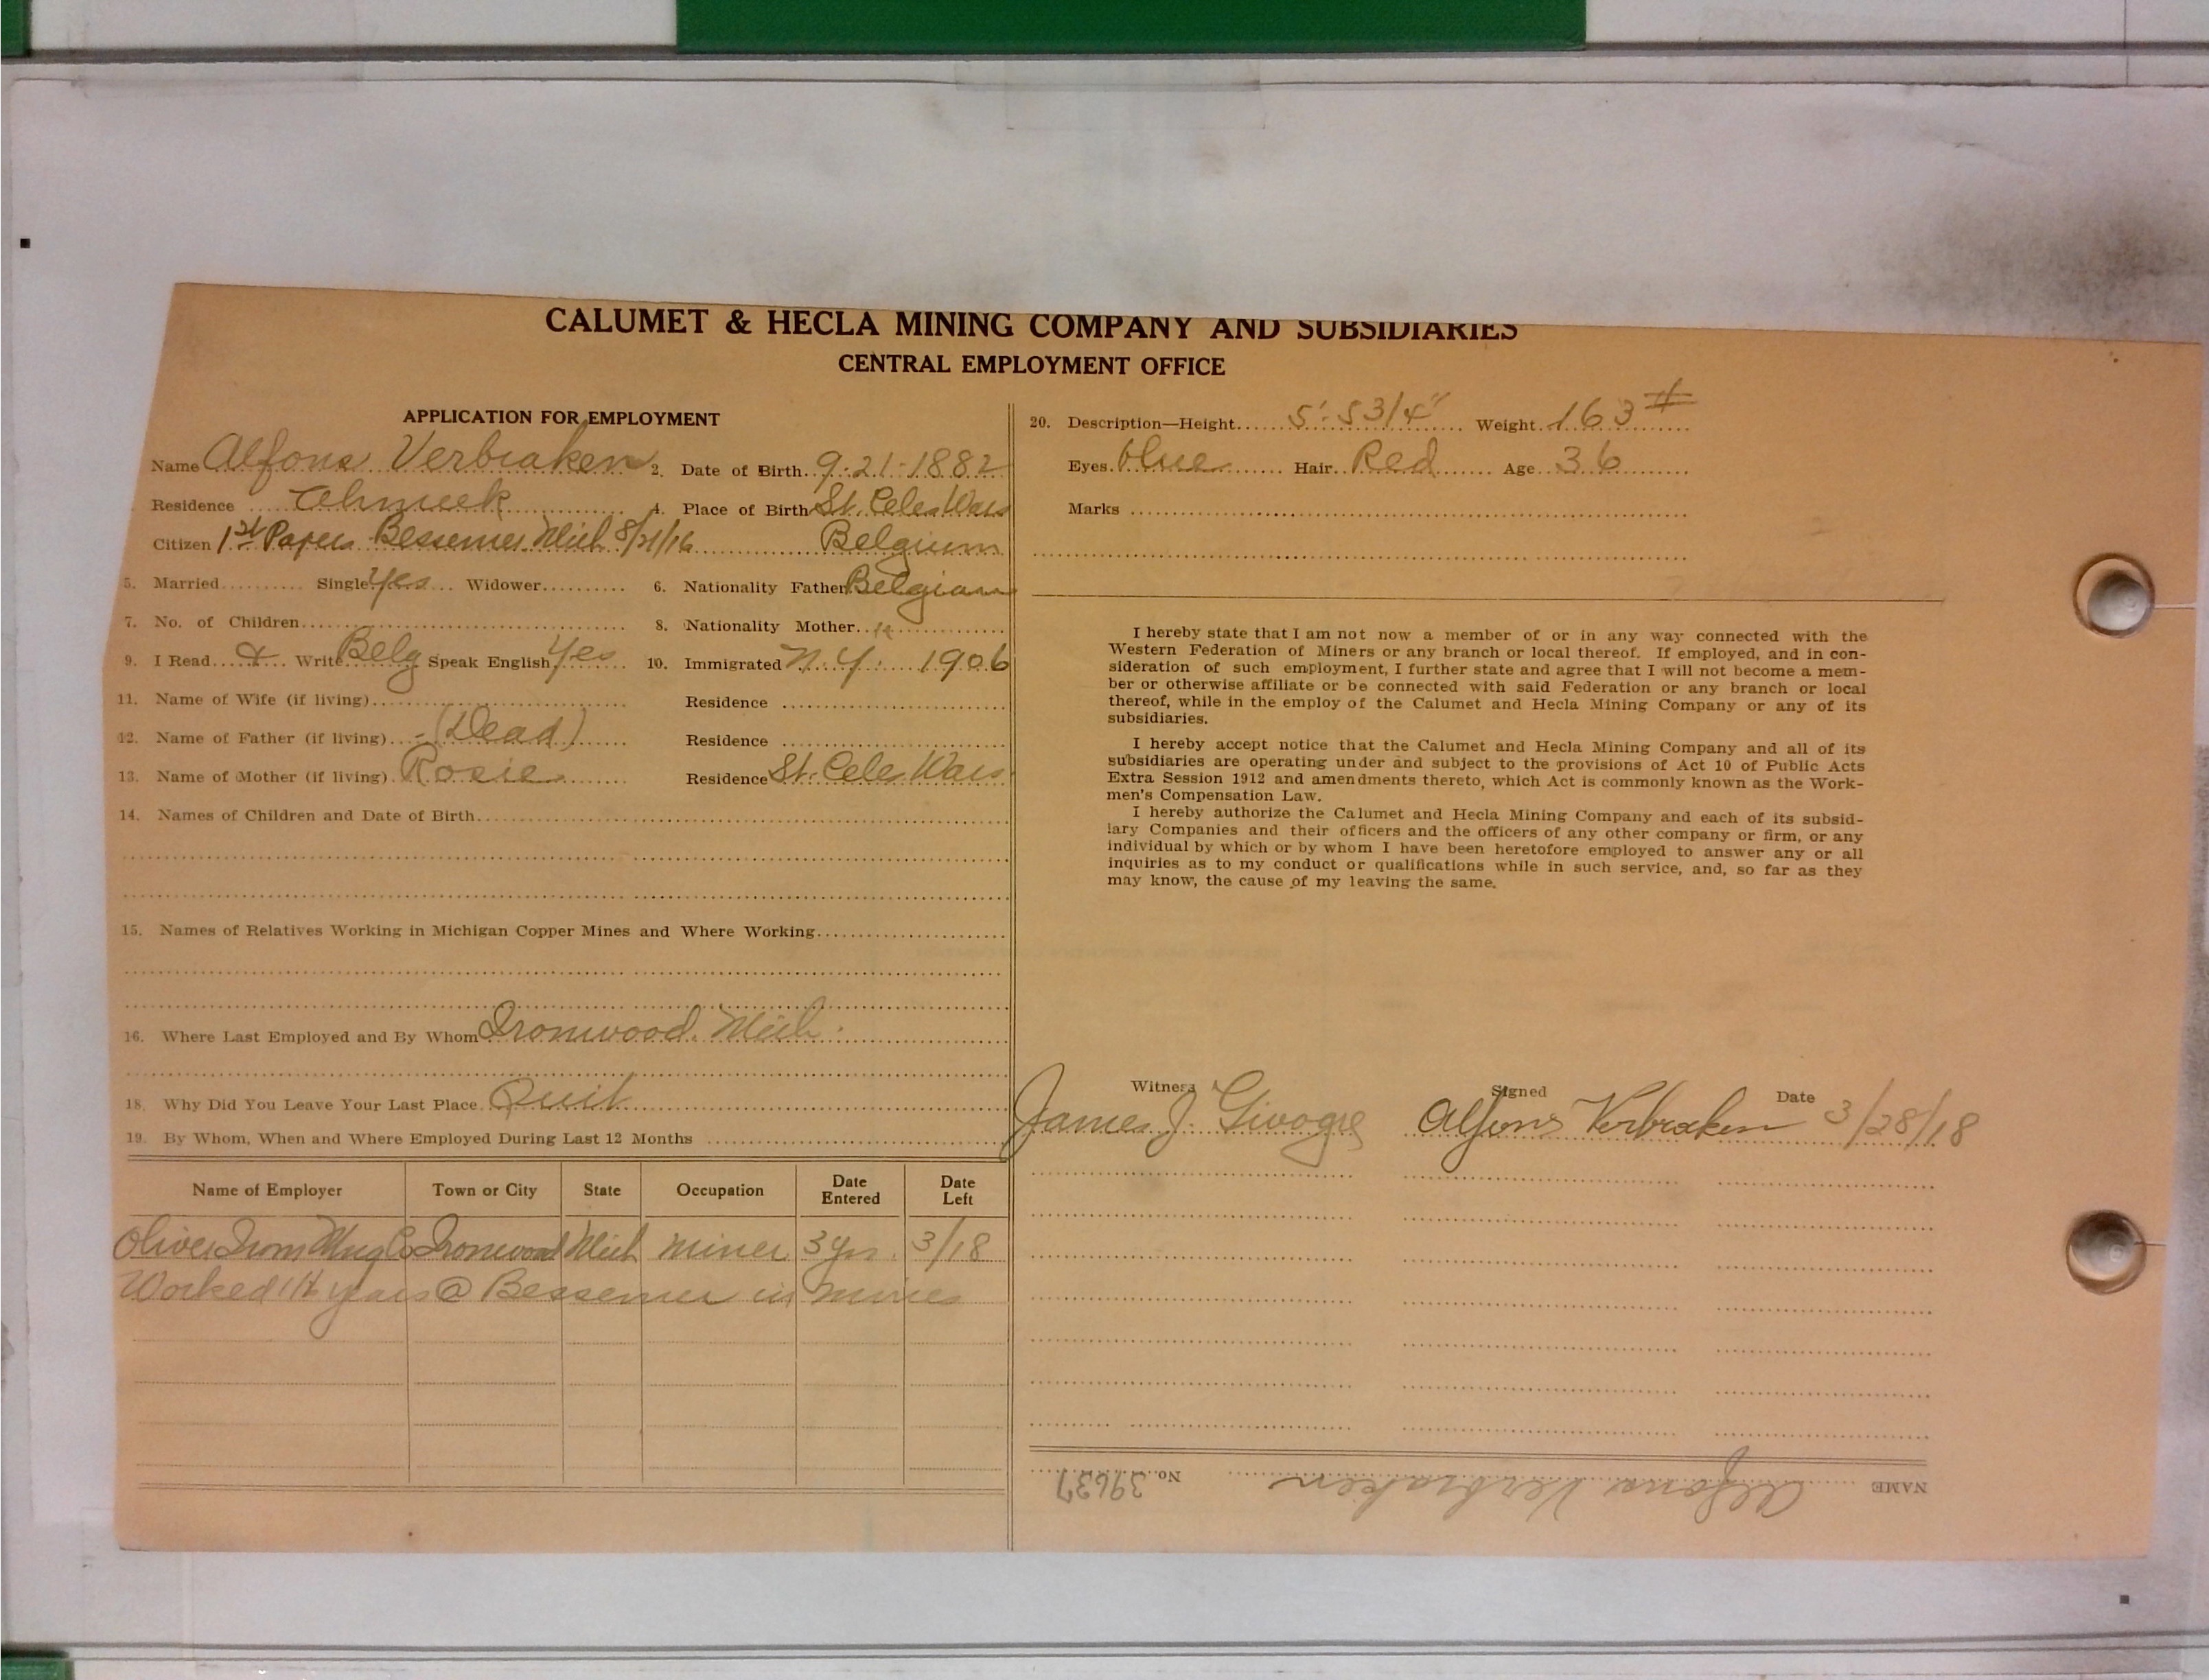 CALUMET & HECLA MINING COMPANY AND SUBSIDIARIES
CENTRAL EMPLOYMENT OFFICE
APPLICATION FOR EMPLOYMENT
Name Alfons Verbraken 2. Date of Birth 9-21-1882
Residence Ahmeek 4. Place of Birth St. Celes Waes
Citizen 1st Papers Bessemer Mich 8/21/16 Belgium
5. Married Single Yes Widower 6. Nationality Father Belgian
7. No. of Children 8. Nationality Mother "
9. I Read & Write Belg Speak English Yes 10. Immigrated N.Y. 1906
11. Name of Wife (if living) Residence
12. Name of Father (if living) - (Dead) Residence
13. Name of Mother (if living) Rosie Residence St. Cele Waes
14. Names of Children and Date of Birth
15. Names of Relatives Working in Michigan Copper Mines and Where Working
16. Where Last Employed and By Whom Ironwood Mich.
18. Why Did You Leave Your Last Place Quit
19. By Whom, When and Where Employed During Last 12 Months
Name of Employer Town or City State Occupation Date Entered Date Left
Oliver Iron Mng Co Ironwood Mich miner 3 yrs. 3/18
Worked years @ Bessemer in mines
20. Description—Height 5'-5 3/4" Weight 163 #
Eyes blue Hair Red Age 36
Marks
I hereby state that I am not now a member of or in any way connected with the
Western Federation of Miners or any branch or local thereof. If employed, and in con-
sideration of such employment, I further state and agree that I will not become a mem-
ber or otherwise affiliate or be connected with said Federation or any branch or local
thereof, while in the employ of the Calumet and Hecla Mining Company or any of its
subsidiaries.
I hereby accept notice that the Calumet and Hecla Mining Company and all of its
subsidiaries are operating under and subject to the provisions of Act 10 of Public Acts
Extra Session 1912 and amendments thereto, which Act is commonly known as the Work-
men's Compensation Law.
I hereby authorize the Calumet and Hecla Mining Company and each of its subsid-
iary Companies and their officers and the officers of any other company or firm, or any
individual by which or by whom I have been heretofore employed to answer any or all
inquiries as to my conduct or qualifications while in such service, and, so far as they
may know, the cause of my leaving the same.
Witness Signed Date
James J. Alfons Verbraken 3/28/18
NAME Alfons Verbraken No. 39637